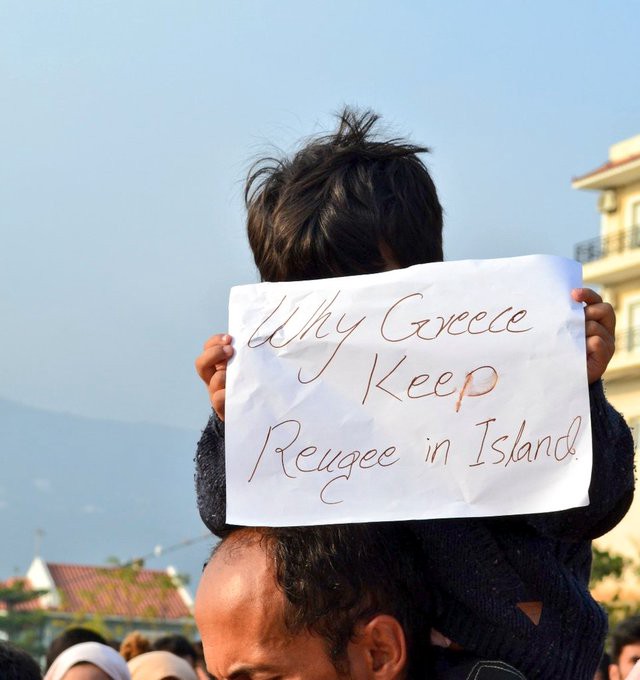 Why Greece
Keep
Reugee in Island.